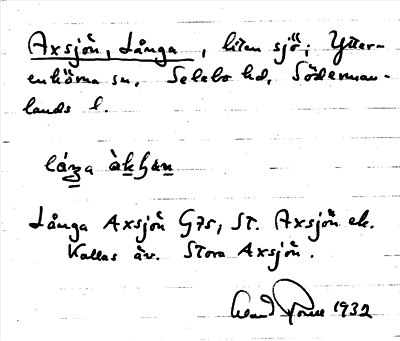 Axsjön, Långa, liten sjö; Ytter-
enhörna sn, Selebo hd, Söderman-
lands l.
låŋa àkʃøn
Långa Axsjön G75, St. Axsjön ek.
Kallas äv. Stora Axsjön.
1932